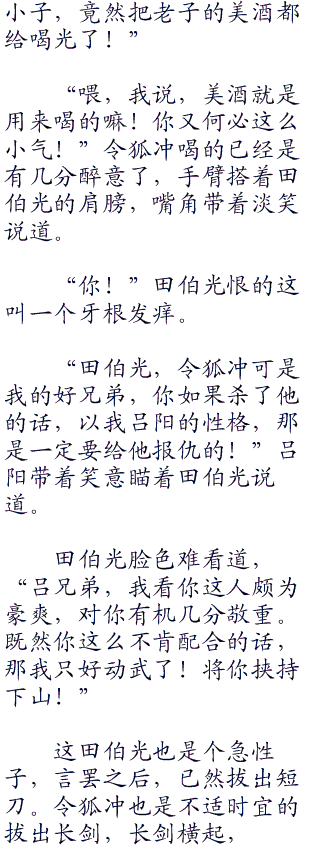 小子，竟然把老子的美酒都
给喝光了！”
“喂，我说，美酒就是
用来喝的嘛！你又何必这么
小气！”令狐冲喝的已经是
有几分醉意了，手臂搭着田
伯光的肩膀，嘴角带着淡笑
说道。
“你！”田伯光恨的这
叫一个牙根发痒。
“田伯光，令狐冲可是
我的好兄弟，你如果杀了他
的话，以我吕阳的性格，那
是一定要给他报仇的！”吕
阳带着笑意瞄着田伯光说
道。
田伯光脸色难看道，
“吕兄弟，我看你这人颇为
豪爽，对你有机几分敬重。
既然你这么不肯配合的话，
那我只好动武了！将你挟持
下山！”
这田伯光也是个急性
子，言罢之后，已然拔出短
刀。令狐冲也是不适时宜的
拔出长剑，长剑横起，